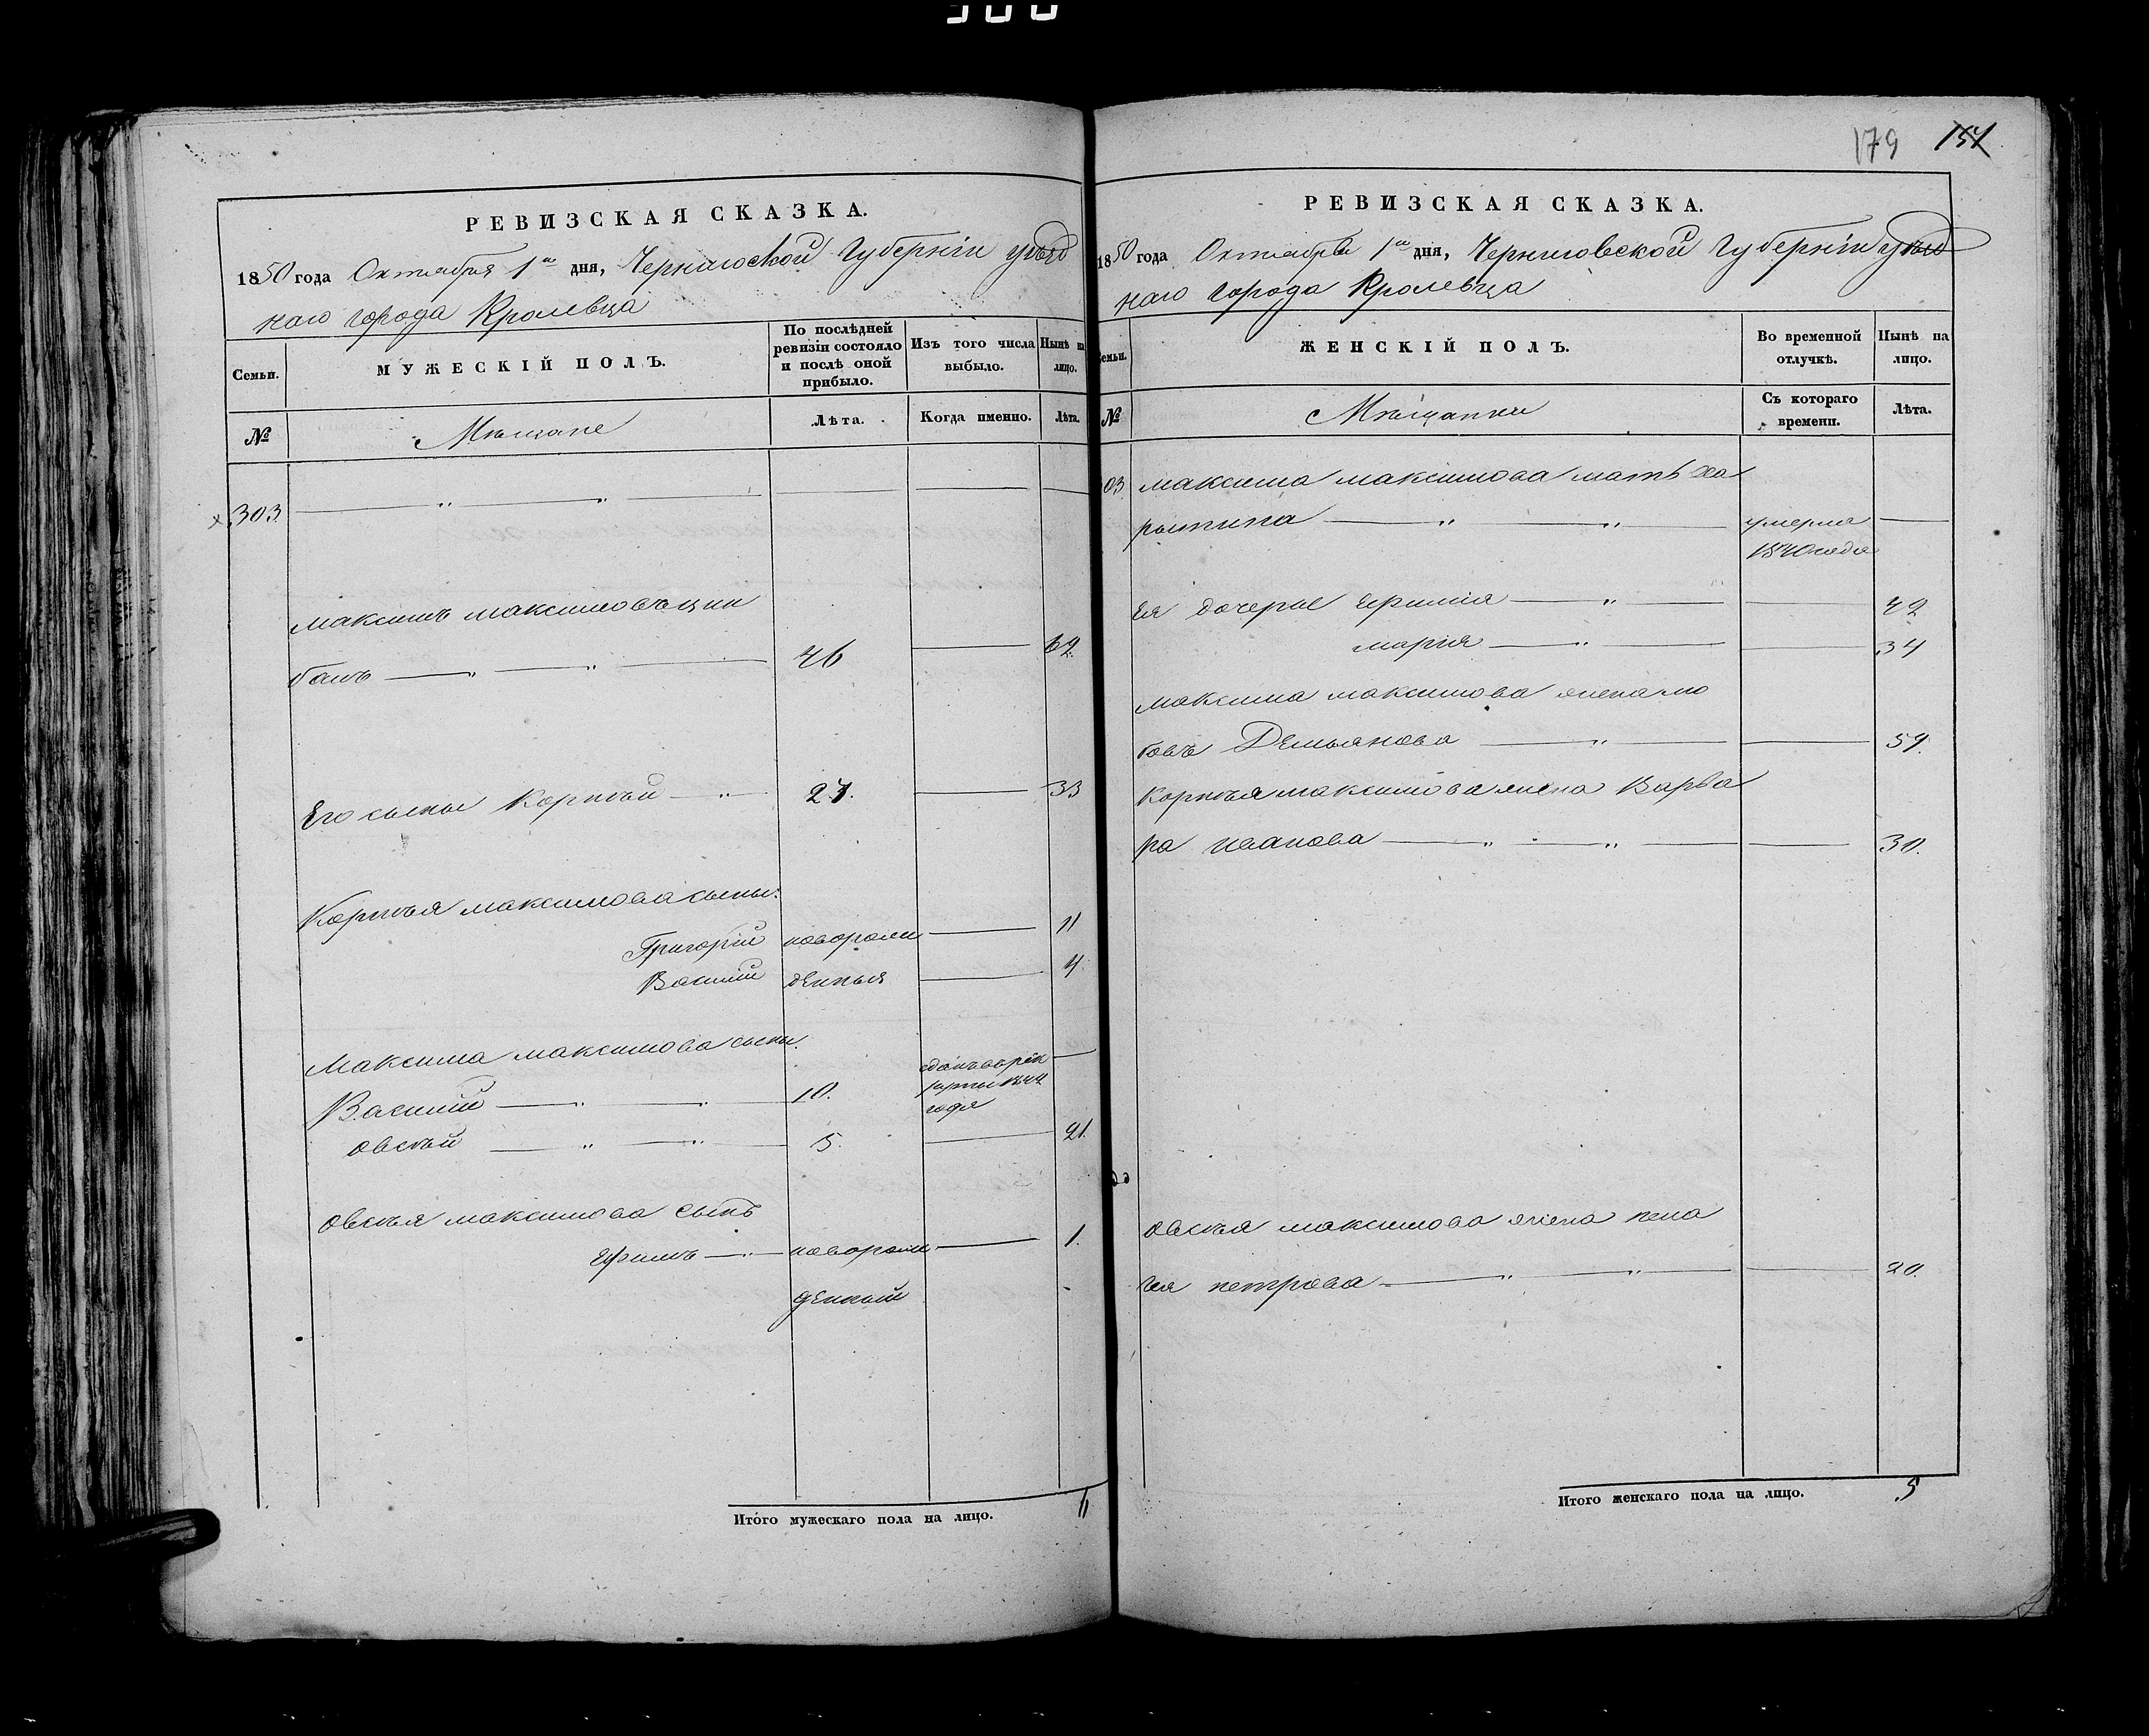 300
РЕВИЗСКАЯ СКАЗКА.
1850 года Октября 1го дня, Черниговской Губерніи уѣзд
наго города Кролевца
Семьи.
МУЖЕСКІЙ ПОЛЪ.
По послѣдней ревизіи состояло и послѣ оной прибыло.
Изъ того числа выбыло.
Нынѣ на лицо.
№
Мѣщане
Лѣта.
Когда именно.
Лѣта.
303.
Максимъ Максимовъ Цим
балъ 46 62.
Его сыны Корнѣй 27. 33
Корнѣя Максимова сыны:
Григорій новорож 11
Василій денныя 4
Максима Максимова сыны.
Василій 10. сданъ въ рек
руты 1844
года
Овсѣй 5. 21.
Овсѣя Максимова сынъ
Ефимъ новорож 1.
денный
Итого мужескаго пола на лицо. 6
179 151
РЕВИЗСКАЯ СКАЗКА.
1850 года Октября 1го дня, Черниговской Губерніи уѣзд
наго города Кролевца
Семьи.
ЖЕНСКІЙ ПОЛЪ.
Во временной отлучкѣ.
Нынѣ на лицо.
№
Мѣщанки
Съ котораго времени.
Лѣта.
03 Максима Максимова мать Ха
ритина умерла
1840 года
Ея дочери 42
Марія 34
Максима Максимова жена Лю
бовъ Демьянова 59.
Корнѣя Максимова жена Варва
ра Иванова 30.
Овсѣя Максимова жена Пела
гея Петрова 20.
Итого женскаго пола на лицо. 5